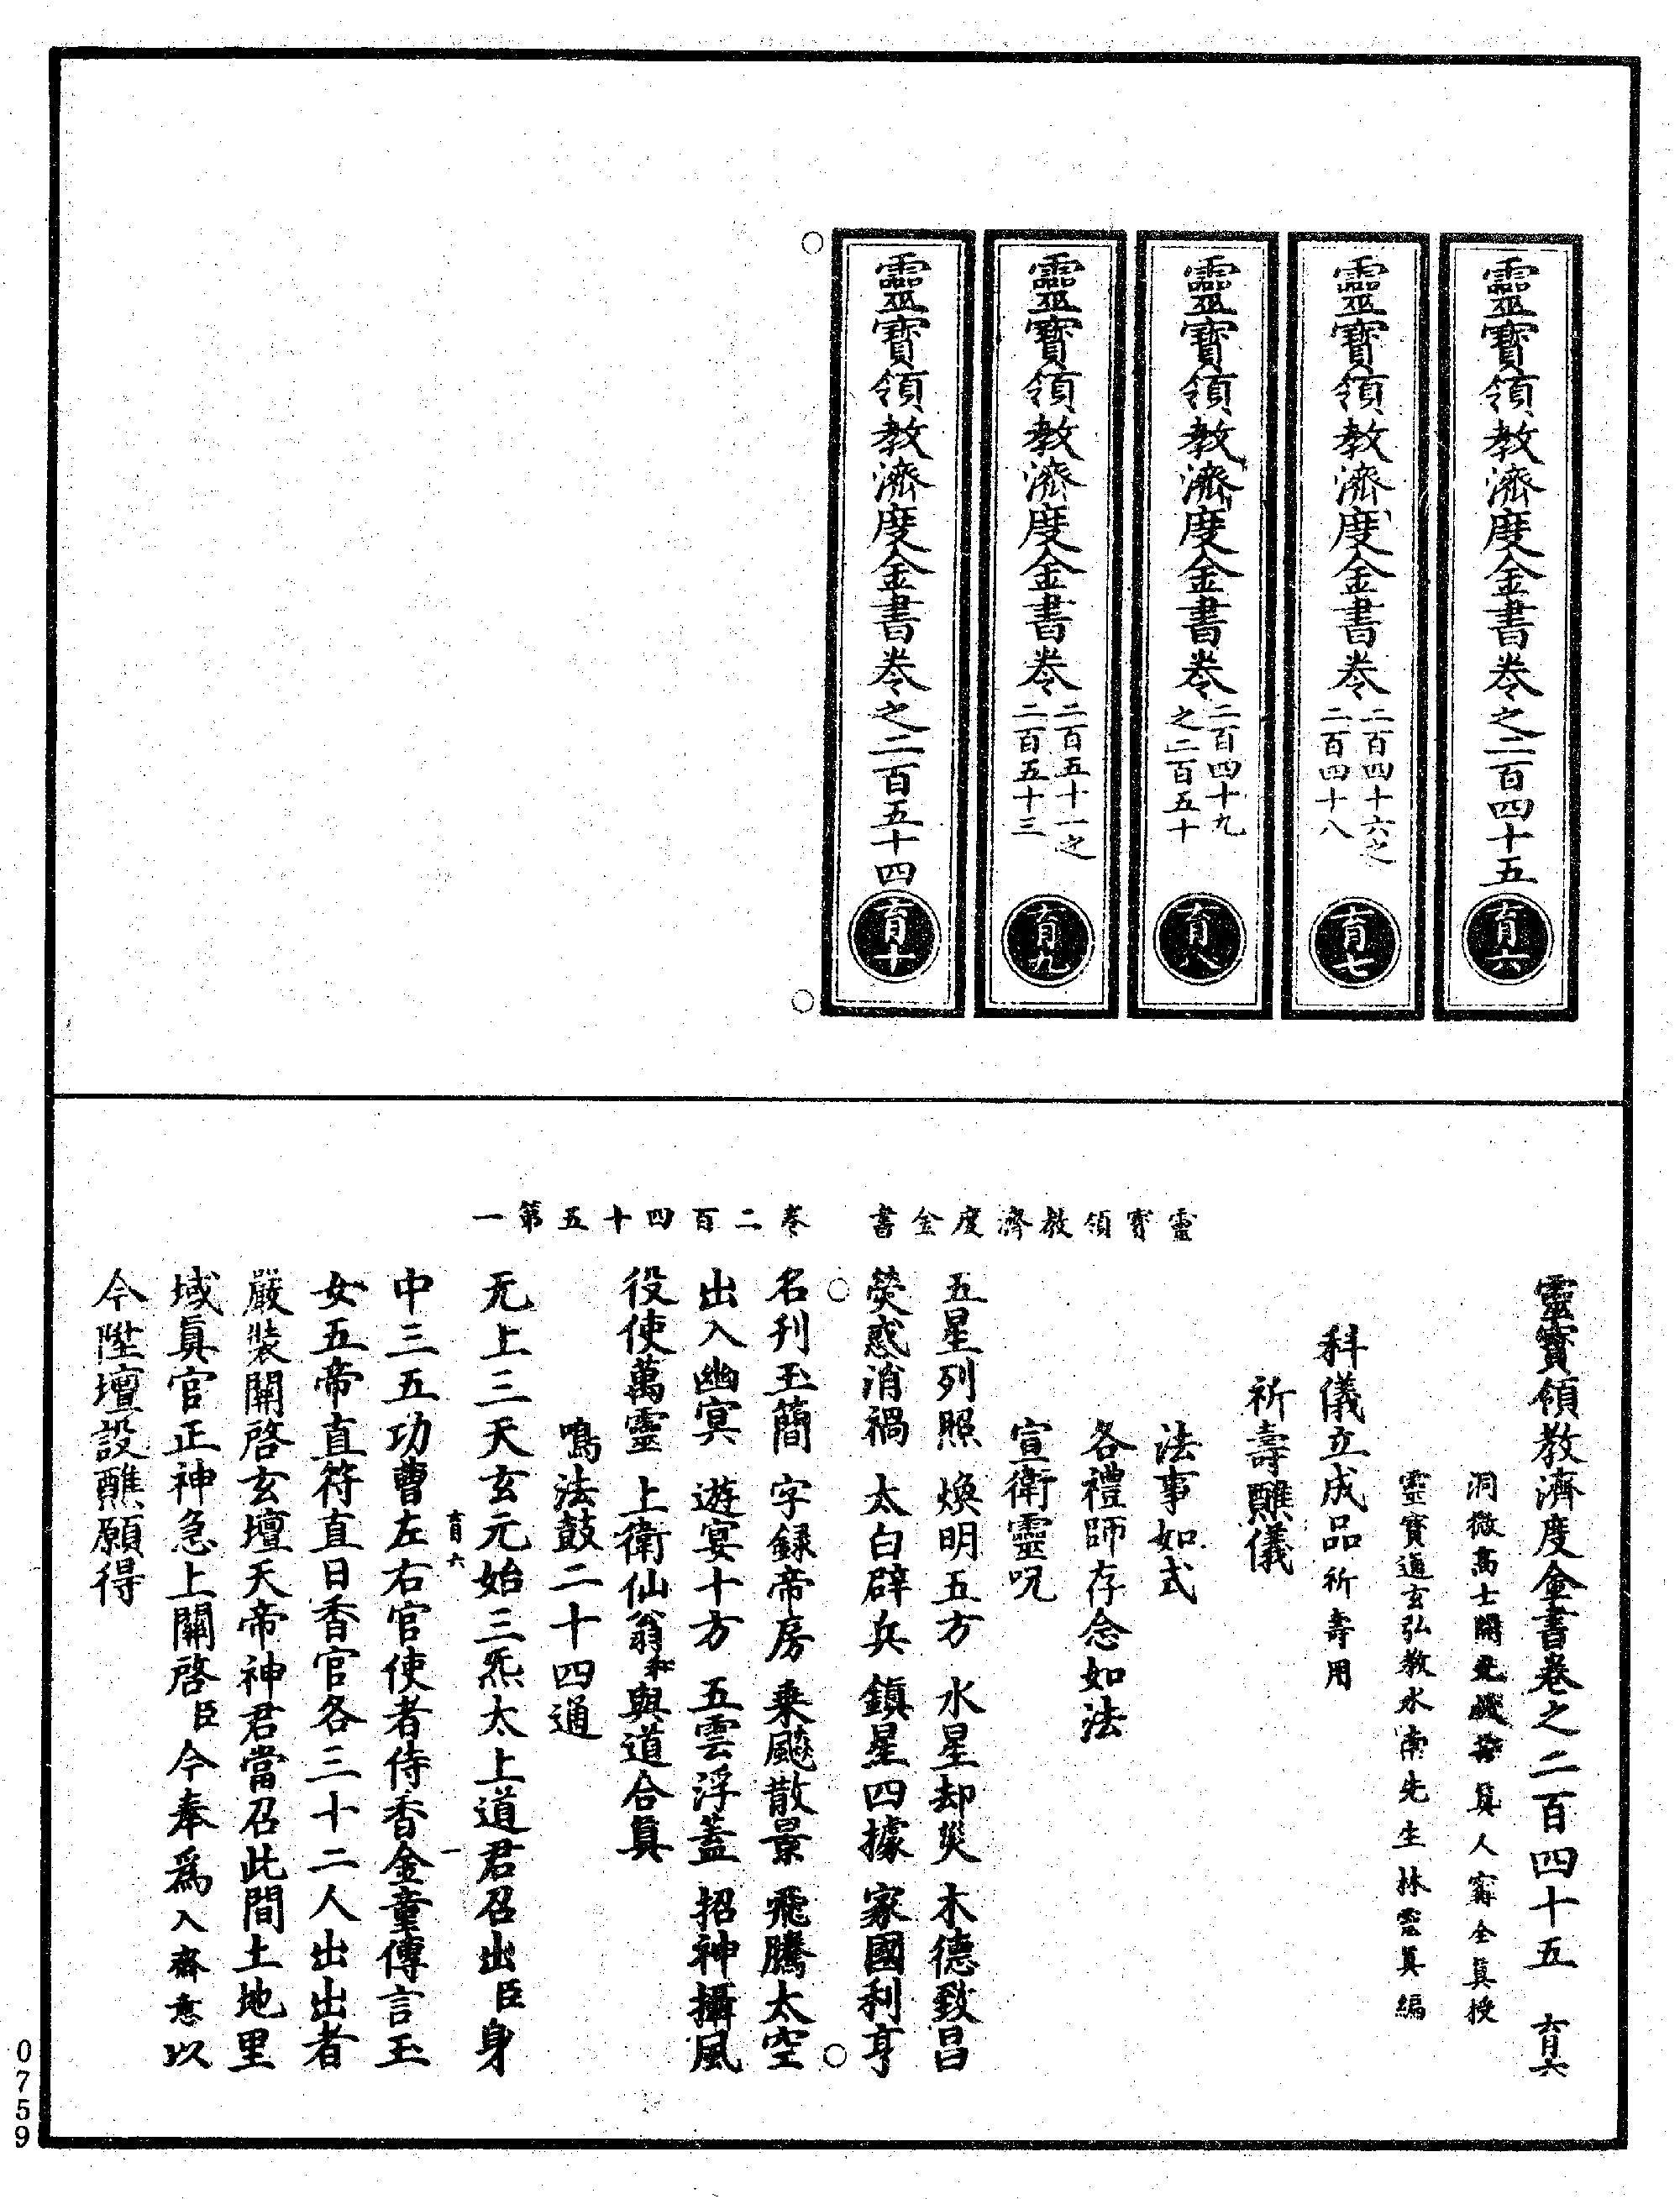 靈寶領教濟度金書卷之二百四十五
育六
靈寶領教濟度金書卷二百四十六之二百四十八
育七
靈寶領教濟度金書卷二百四十九之二百五十
育八
靈寶領教濟度金書卷二百五十一之二百五十三
育九
靈寶領教濟度金書卷之二百五十四
育十
靈寶領教濟度金書卷之二百四十五 育六
洞微高士開光救苦真人甯全真授
靈寶通玄弘教水南先生林靈真編
科儀立成品祈壽用
祈壽醮儀
法事如式
各禮師存念如法
宣衛靈呪
五星列照 煥明五方 水星却災 木德致昌
熒惑消禍 太白辟兵 鎮星四據 家國利亨
名刋玉簡 字録帝房 乗飈散景 飛騰太空
出入幽冥 遊宴十方 五雲浮蓋 招神攝風
役使萬靈 上衛仙翁和與道合真
鳴法鼓二十四通
无上三天玄元始三炁太上道君召出臣身
中三五功曹左右官使者侍香金童傳言玉
女五帝直符直日香官各三十二人出出者
嚴裝關啓玄壇天帝神君當召此間土地里
域真官正神急上關啓臣今奉爲入齋意以
今陞壇設醮願得
靈寶領教濟度金書 卷二百四十五第一
育六 一
0759